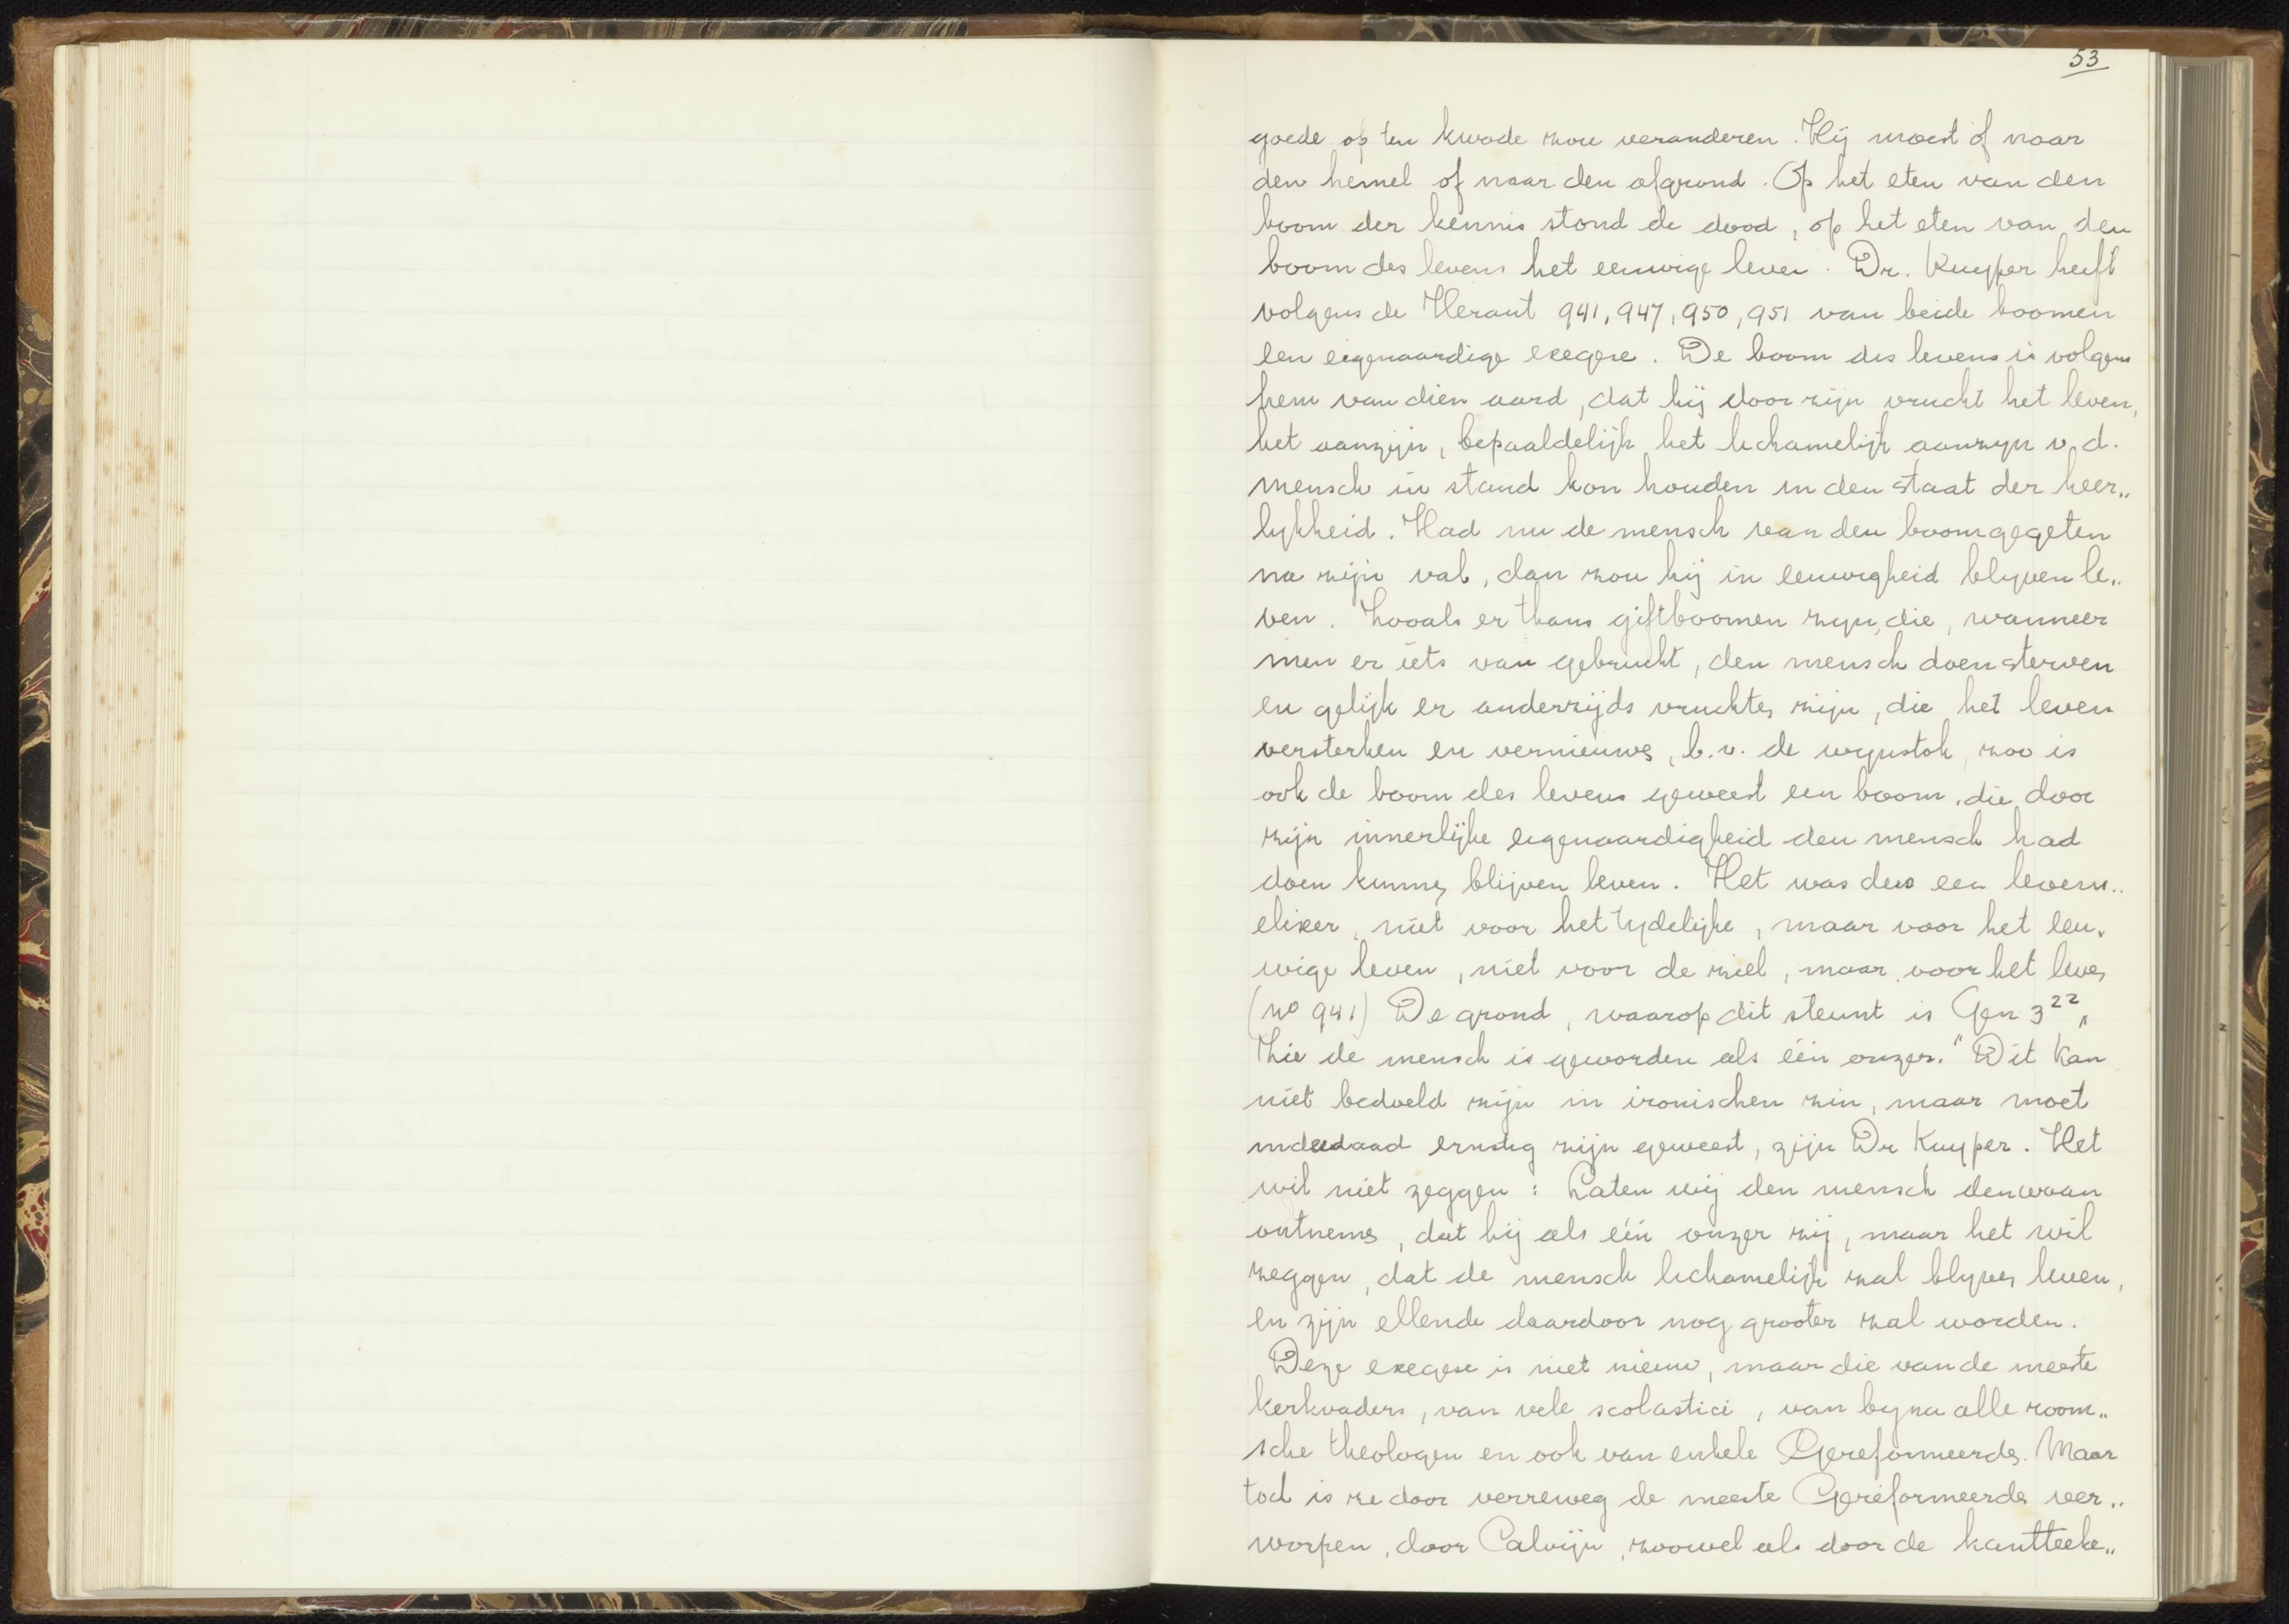 53
goede op ten kwade zou veranderen. Hij moest of naar
den hemel of naar den afgrond. Op het eten van den
boom der kennis stond de dood, op het eten van den
boom des levens het eeuwige leven. Dr. Kuyper heeft
volgens de Heraut 941, 947, 950, 951 van beide boomen
een eigenaardige exegese. De boom des levens is volgens
hem van dien aard, dat hij door zijn vrucht het leven,
het aanzijn, bepaaldelijk het lichamelijk aanzyn v. d.
mensch in stand kon houden in den staat der heer„
lykheid. Had nu de mensch van den boom gegeten
na zijn val, dan zou hij in eeuwigheid blyven le„
ven. Zooals er thans giftboomen zyn, die, wanneer
men er iets van gebruikt, den mensch doen sterven
en gelijk er anderzijds vruchten zijn, die het leven
versterken en vernieuwen, b.v. de wynstok, zoo is
ook de boom des levens geweest een boom, die door
zijn innerlijke eigenaardigheid den mensch had
doen kunnen blijven leven. Het was dus een levens„
elixer, niet voor het tydelijke, maar voor het eeu„
wige leven, niet voor de ziel, maar voor het leven
(no 941) De grond, waarop dit steunt is Gen 3²² „
Zie de mensch is geworden als één onzer." Dit kan
niet bedoeld zijn in ironischen zin, maar moet
inderdaad ernstig zijn geweest, zijn Dr Kuyper. Het
wil niet zeggen: Laten wij den mensch den waan
ontnemen, dat hij als één onzer zij, maar het wil
zeggen, dat de mensch lichamelijk zal blyven leven,
en zijn ellende daardoor nog grooter zal worden.
Deze exegese is niet nieuw, maar die van de meeste
kerkvaders, van vele scolastici, van byna alle room„
sche theologen en ook van enkele Gereformeerden. Maar
toch is ze door verreweg de meeste Gereformeerden ver„
worpen, door Calvijn, zoowel als door de kantteeke„